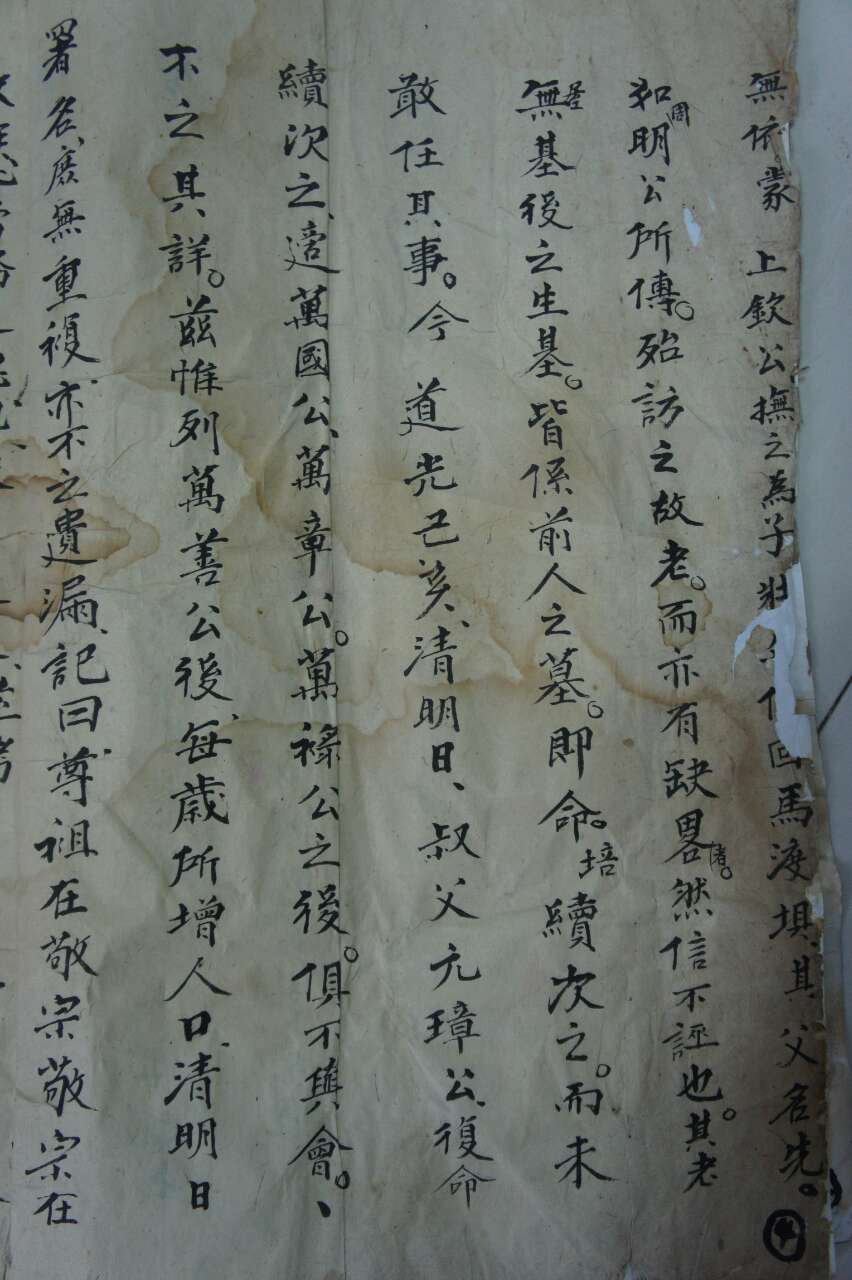 無依蒙 上欽公撫之為子 回馬渡垻其父名先。
如周明公所傳。殆訪之故老。而亦有缺畧者。然信不誣也。其老
無基後之生基。皆係前人之墓。即命。培續次之。而未
敢任其事。今 道光己亥、清明日、叔父元璋公、復命
續次之、遶萬國公、萬章公。萬祿公之後。俱不與會。、
不之其詳。茲惟列萬善公後、每歲所增人口、清明日
署名、庶無重複、亦不之遺漏、記曰、尊祖在敬宗敬宗在